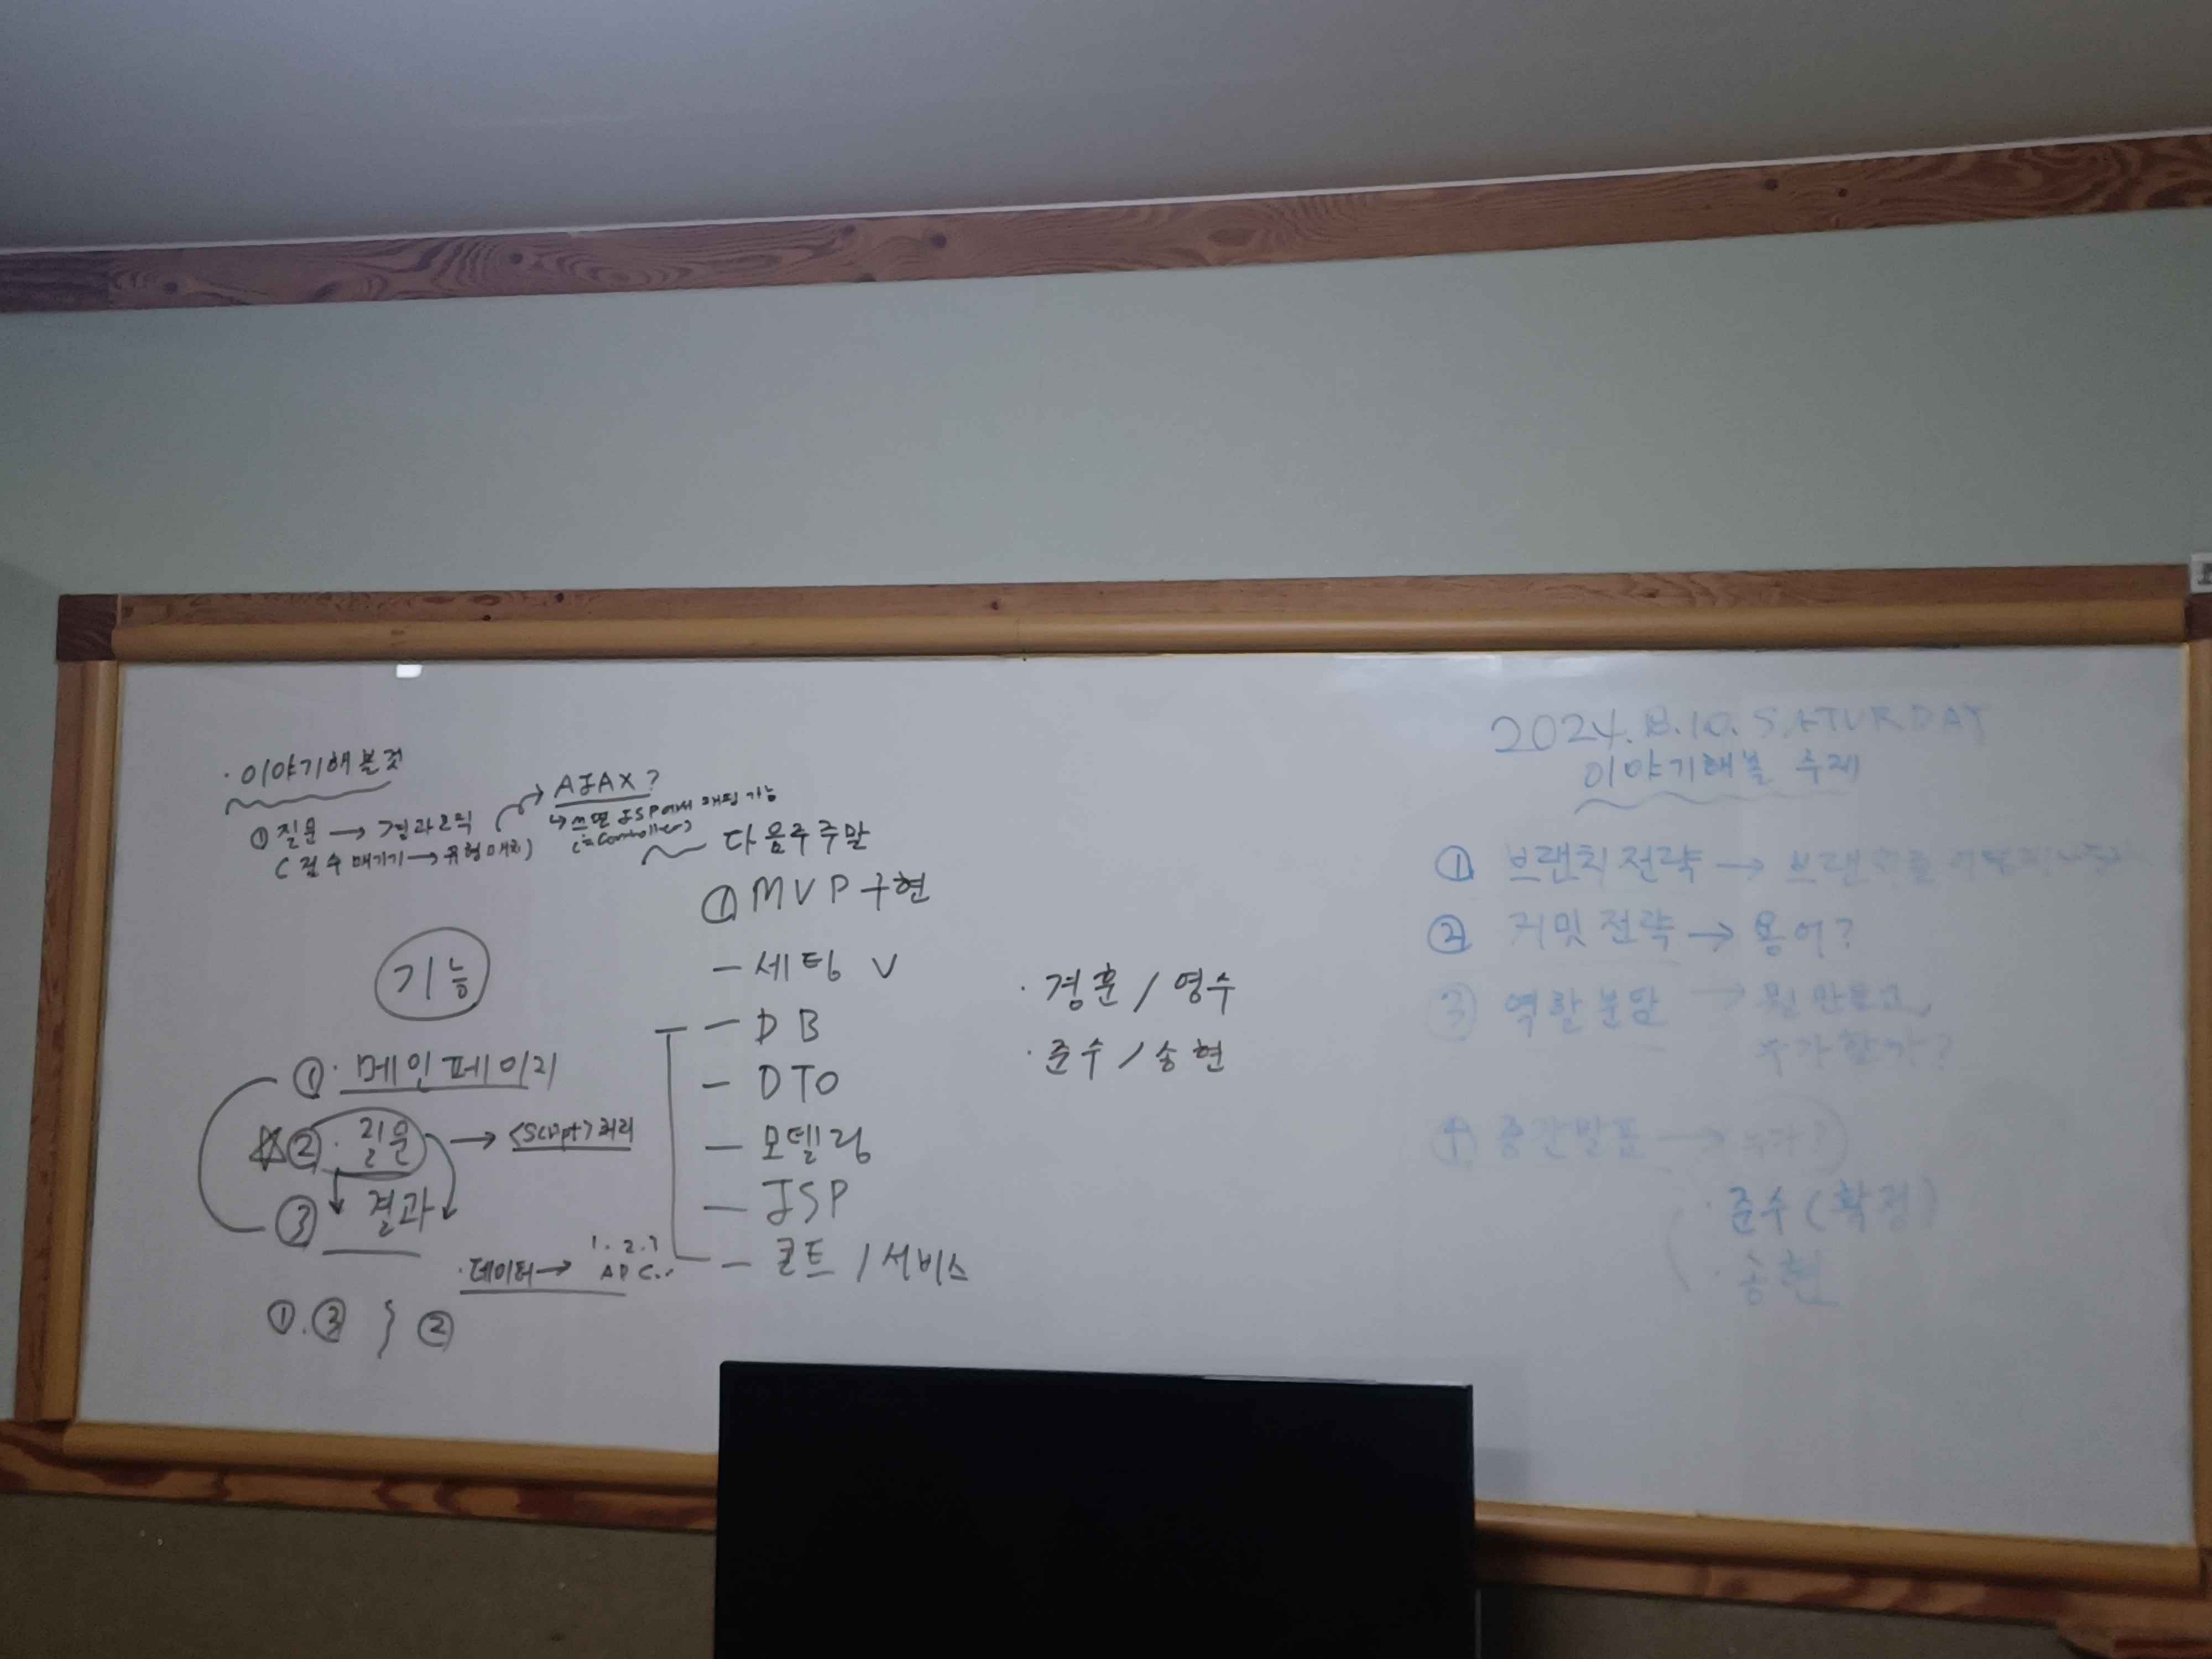 · 이야기해볼것
① 질문 → 결과로직
(점수 매기기 → 유형매칭)
AJAX?
↳ 쓰면 JSP에서 매핑 가능
(≒Controller)
기능
① · 메인페이지
☆② · 질문 → <Script> 처리
③ 결과
· 데이터 → 1. 2. 3
A B C..
①.③ } ②
다음주 주말
① MVP 구현
- 세팅 V
- DB
- DTO
- 모델링
- JSP
- 코트 / 서비스
· 경훈 / 영수
· 준수 / 송현
2024.8.10. SATURDAY
이야기해볼 주제
① 브랜치 전략 → 브랜치를
② 커밋 전략 → 용어?
③ 역할 분담 → 뭘 만들고,
누가 할까?
④ 중간발표 → 누가?
· 준수 (확정)
· 송현